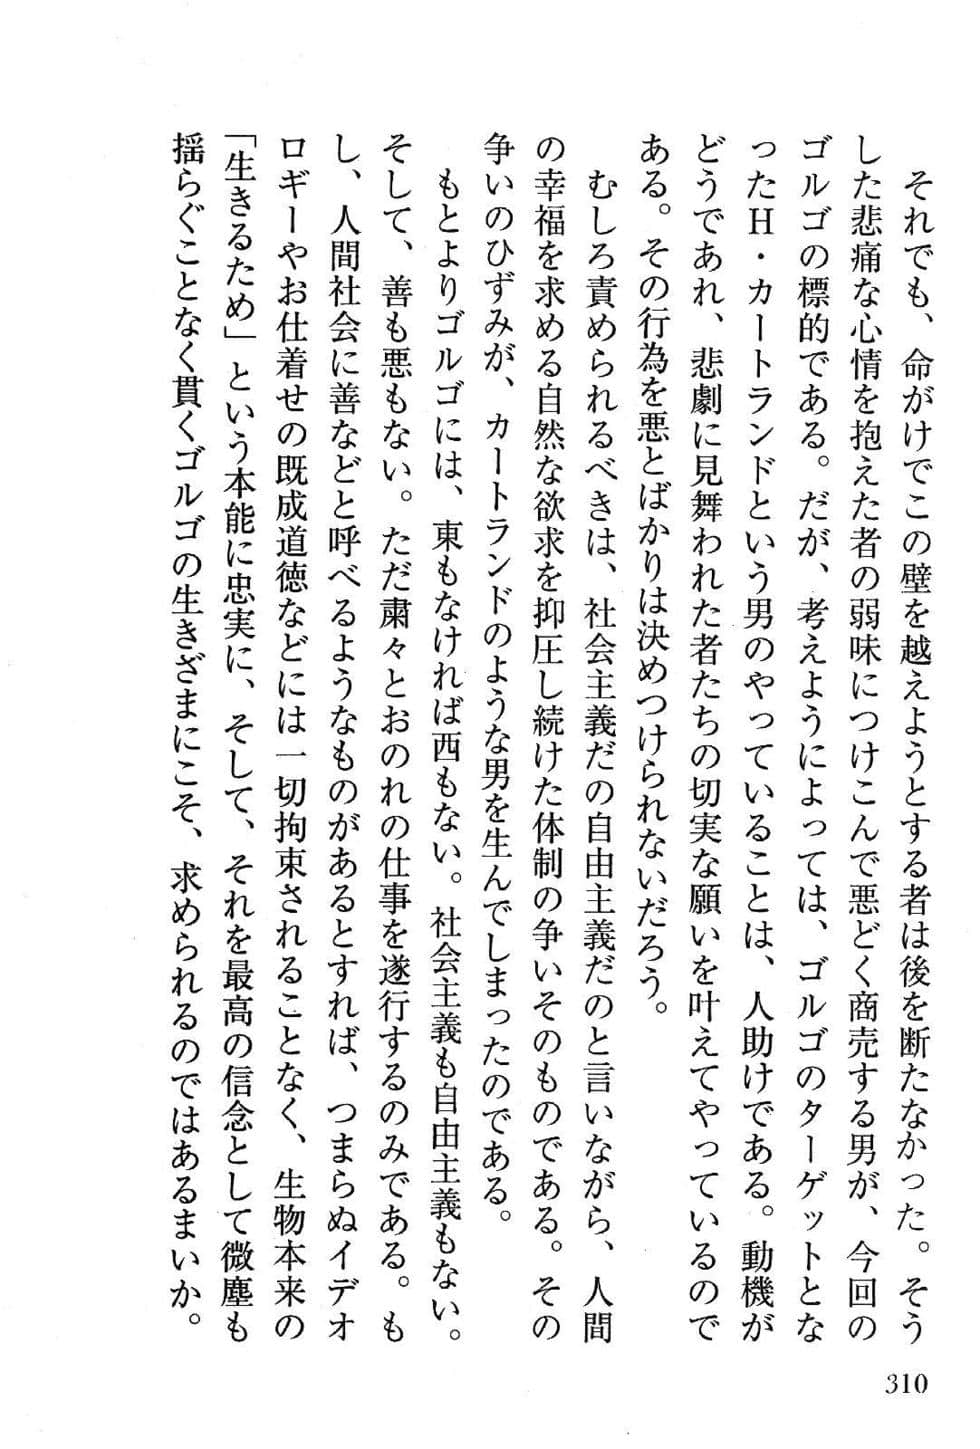 それでも、命がけでこの壁を越えようとする者は後を断たなかった。そう
した悲痛な心情を抱えた者の弱味につけこんで悪どく商売する男が、今回の
ゴルゴの標的である。だが、考えようによっては、ゴルゴのターゲットとな
ったＨ・カートランドという男のやっていることは、人助けである。動機が
どうであれ、悲劇に見舞われた者たちの切実な願いを叶えてやっているので
ある。その行為を悪とばかりは決めつけられないだろう。
むしろ責められるべきは、社会主義だの自由主義だのと言いながら、人間
の幸福を求める自然な欲求を抑圧し続けた体制の争いそのものである。その
争いのひずみが、カートランドのような男を生んでしまったのである。
もとよりゴルゴには、東もなければ西もない。社会主義も自由主義もない。
そして、善も悪もない。ただ粛々とおのれの仕事を遂行するのみである。も
し、人間社会に善などと呼べるようなものがあるとすれば、つまらぬイデオ
ロギーやお仕着せの既成道徳などには一切拘束されることなく、生物本来の
「生きるため」という本能に忠実に、そして、それを最高の信念として微塵も
揺らぐことなく貫くゴルゴの生きざまにこそ、求められるのではあるまいか。
310